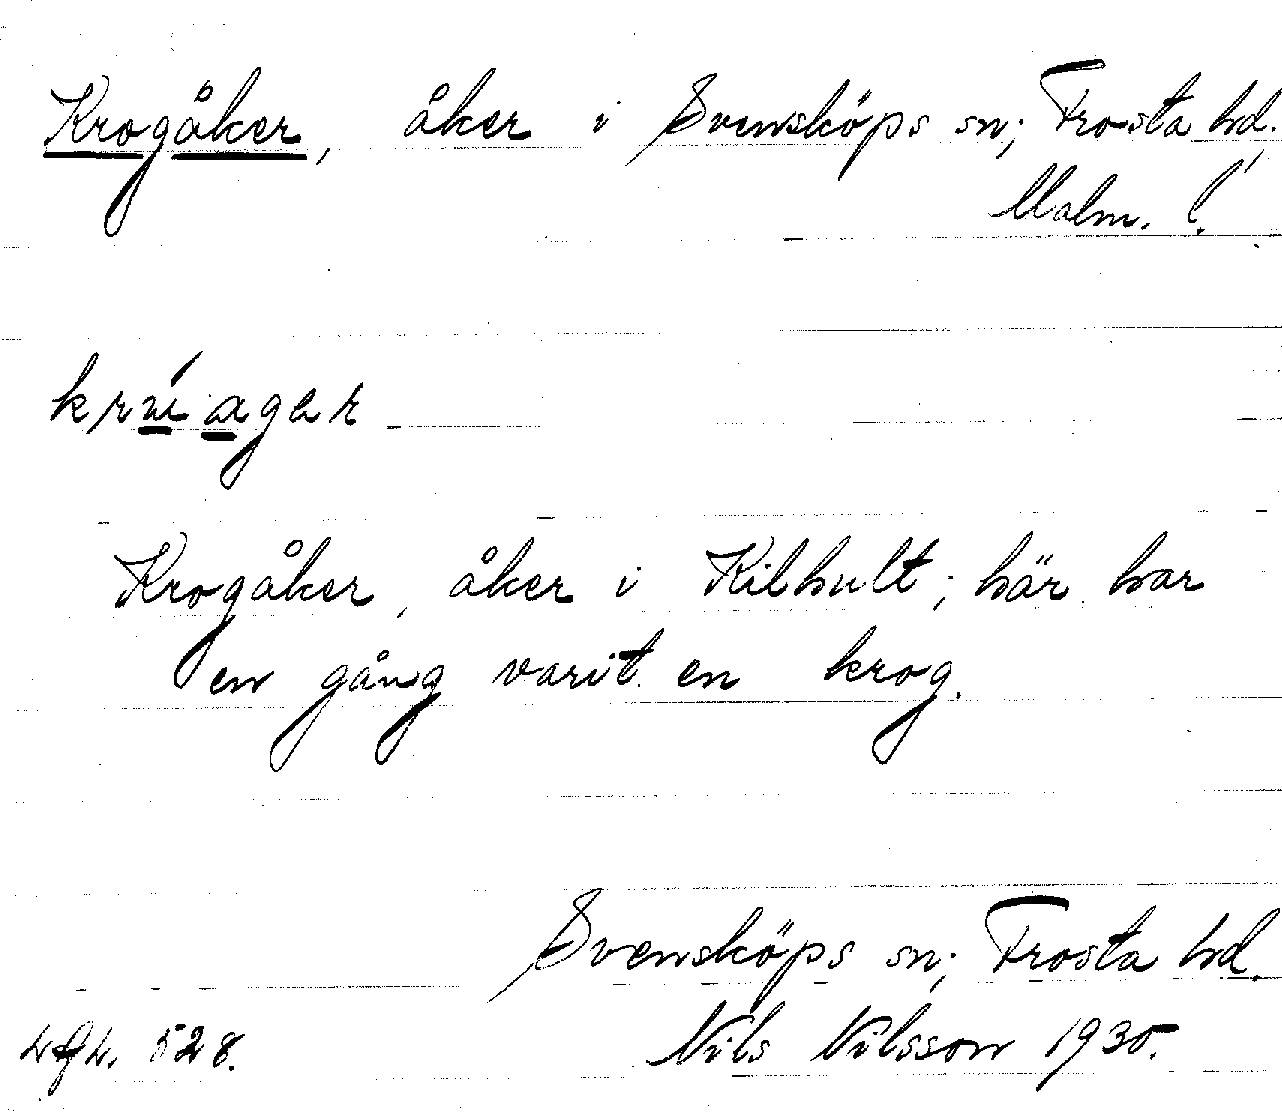 Krogåker, åker i Svensköps sn; Frosta hd.
Malm. l.
Krogåker, åker i Kilhult; här har
en gång varit en krog.
Svensköps sn; Frosta hd.
528. Nils Nilsson 1930.